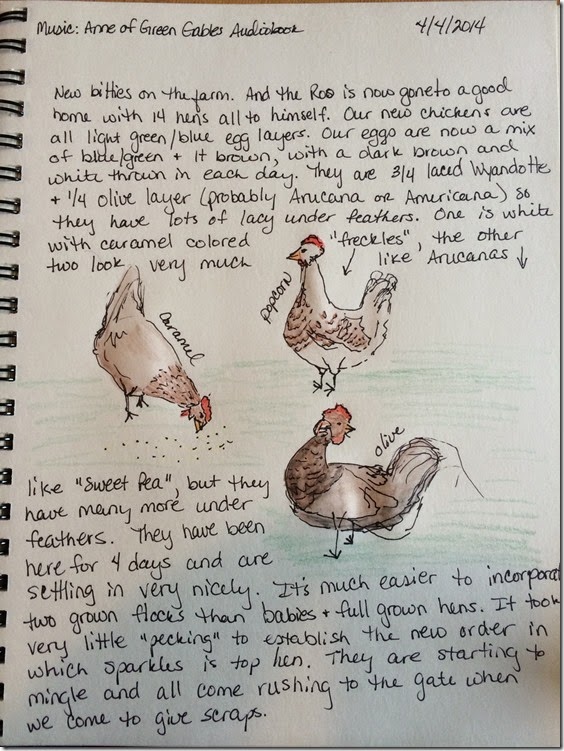 Music: Anne of Green Gables Audiobook 4/4/2014
New bitties on the farm. And the Roo is now gone to a good
home with 14 hens all to himself. Our new chickens are
all light green/blue egg layers. Our eggs are now a mix
of blue/green + lt brown, with a dark brown and
white thrown in each day. They are 3/4 laced Wyandotte
+ 1/4 olive layer (probably Arucana or Americana) so
they have lots of lacy under feathers. One is white
with caramel colored "freckles", the other
two look very much like Arucanas
popcorn
caramel
olive
like "Sweet Pea", but they
have many more under
feathers. They have been
here for 4 days and are
settling in very nicely. It's much easier to incorporat
two grown flocks than babies + full grown hens. It took
very little "pecking" to establish the new order in
which sparkles is top hen. They are starting to
mingle and all come rushing to the gate when
we come to give scraps.